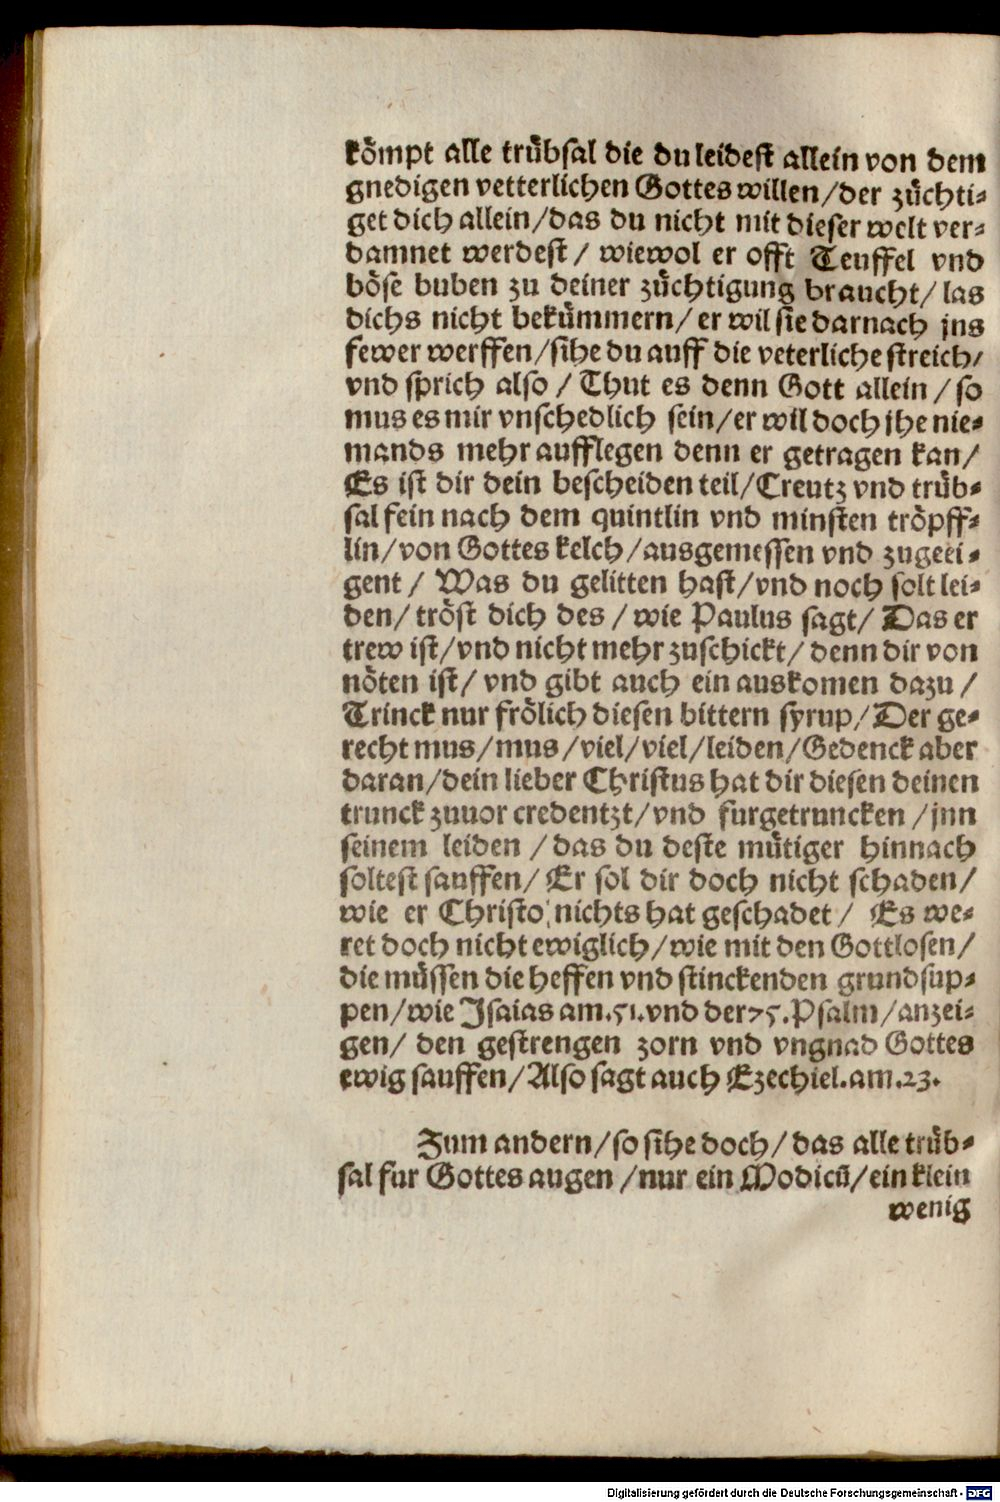 kömpt alle trübsal die du leidest allein von dem
gnedigen vetterlichen Gottes willen/der züchti⸗
get dich allein/das du nicht mit dieser welt ver⸗
damnet werdest / wiewol er offt Teuffel vnd
böse buben zu deiner züchtigung braucht/ las
dichs nicht bekümmern/ er wil sie darnach jns
fewer werffen/sihe du auff die veterliche streich/
vnd sprich also / Thut es denn Gott allein / so
mus es mir vnschedlich sein/er wil doch jhe nie⸗
mands mehr aufflegen denn er getragen kan/
Es ist dir dein bescheiden teil/Creutz vnd trüb⸗
sal fein nach dem quintlin vnd minsten tröpff⸗
lin/von Gottes kelch/ausgemessen vnd zugeei⸗
gent / Was du gelitten hast/vnd noch solt lei⸗
den/ tröst dich des / wie Paulus sagt/ Das er
trew ist/vnd nicht mehr zuschickt/ denn dir von
nöten ist/ vnd gibt auch ein auskomen dazu /
Trinck nur frölich diesen bittern syrup/Der ge⸗
recht mus/mus/viel/viel/leiden/Gedenck aber
daran/dein lieber Christus hat dir diesen deinen
trunck zuuor credentzt/vnd furgetruncken /jnn
seinem leiden /das du deste mütiger hinnach
soltest sauffen/ Er sol dir doch nicht schaden/
wie er Christo nichts hat geschadet / Es we⸗
ret doch nicht ewiglich/wie mit den Gottlosen/
die müssen die heffen vnd stinckenden grundsup⸗
pen/wie Isaias am.51.vnd der 75.Psalm/anzei⸗
gen/ den gestrengen zorn vnd vngnad Gottes
ewig sauffen/Also sagt auch Ezechiel.am.23.
Zum andern/so sihe doch/das alle trüb⸗
sal fur Gottes augen /nur ein Modicū/ein klein
wenig
Digitalisierung gefördert durch die Deutsche Forschungsgemeinschaft - DFG